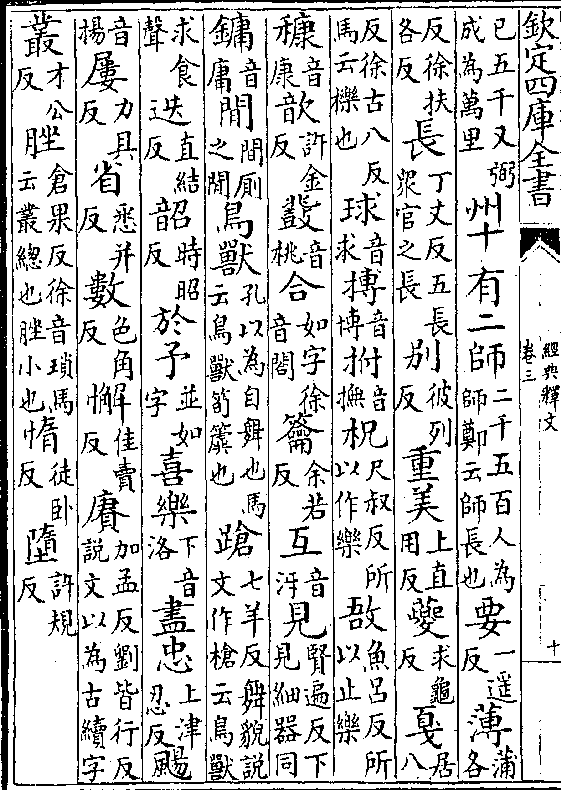 欽定四庫全書
經典釋文
卷三
十
已五千又弼成為萬里州十有二師二千五百人為師鄭云師長也要一遥反薄蒲各
反徐扶各反長丁丈反五長衆官之長别彼列反重美上直用反夔求龜反戛居八
反徐古八反馬云櫟也球音求搏音博拊音撫柷尺叔反所以作樂敔魚呂反所以止樂
穅音康歆許金反鼗音桃合如字徐音閤籥余若反互音見賢遍反下見細器同
鏞音庸間間厠之間鳥獸孔以為自舞也馬云鳥獸筍簴也蹌七羊反舞貌說文作槍云鳥獸
求食聲迭直結反韶時昭反於予並如字喜樂下音洛盡忠上津忍反颺
音揚屢力具反省悉井反數色角反懈佳賣反賡加孟反劉皆行反說文以為古續字
叢才公反脞倉果反徐音瑣馬云叢總也脞小也惰徒卧反墮許規反